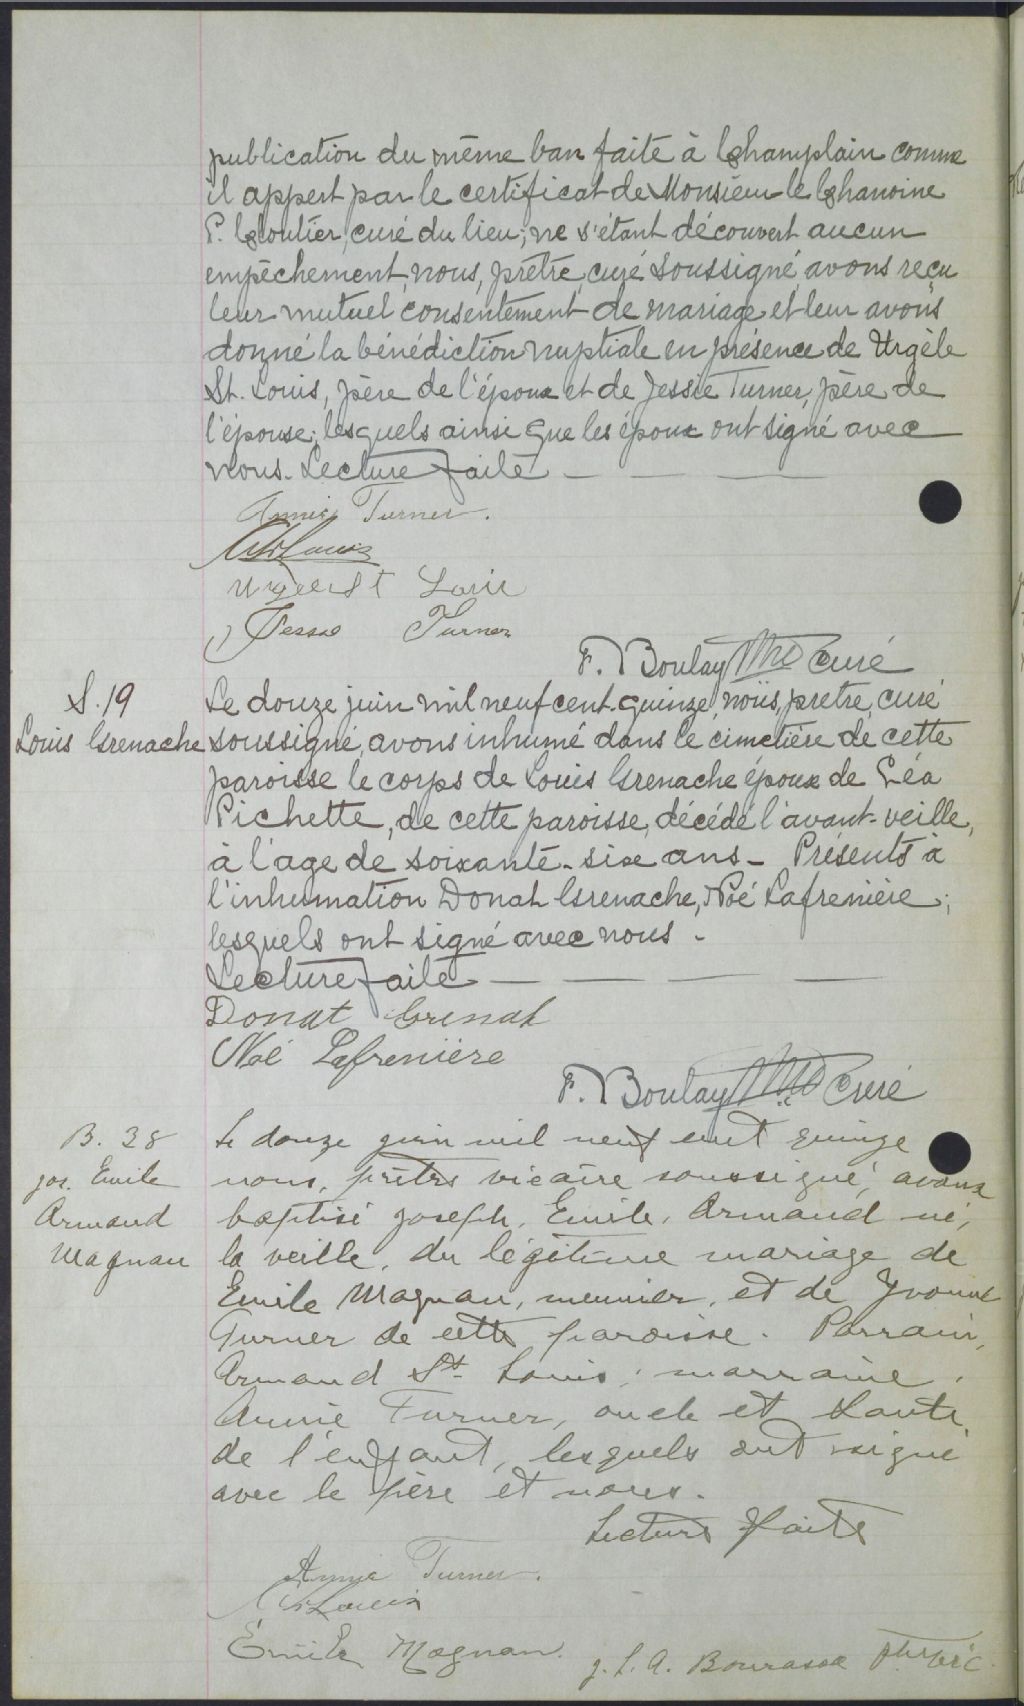 publication du même ban faite à Champlain comme
il appert par le certificat de Monsieur le Chanoine
P. Cloutier, curé du lieu; ne s'étant découvert aucun
empêchement, nous, prêtre, curé soussigné, avons reçu
leur mutuel consentement de mariage et leur avons
donné la bénédiction nuptiale en présence de Urgèle
St. Louis, père de l'époux et de Jessie Turner, père de
l'épouse; lesquels ainsi que les époux ont signé avec
nous. Lecture faite
Annie Turner.
A St Louis
Urgele St Louis
Jesse Turner
F. Boulay Ptre Curé
S. 19
Louis Grenache
Le douze juin mil neuf cent quinze, nous, prêtre, curé
soussigné, avons inhumé dans le cimetière de cette
paroisse le corps de Louis Grenache époux de Léa
Pichette, de cette paroisse, décédé l'avant-veille,
à l'age de soixante-six ans - Présents à
l'inhumation Donat Grenache, Noé Lafrenière;
lesquels ont signé avec nous -
Lecture faite
Donat Grenach
Noé Lafrenière
F. Boulay Ptre Curé
B. 38
Jos. Emile
Armand
Magnan
Le douze juin mil neuf cent quinze
nous, prêtre vicaire soussigné, avons
baptisé Joseph, Emile, Armand né,
la veille, du légitime mariage de
Emile Magnan, meunier, et de Yvonne
Turner de cette paroisse. Parrain,
Armand St- Louis; marraine,
Annie Turner, oncle et tante
de l'enfant, lesquels ont signé
avec le père et nous.
Lecture faite
Annie Turner.
A St Louis
Émile Magnan.
J. L. A. Bourassa ptre vic.